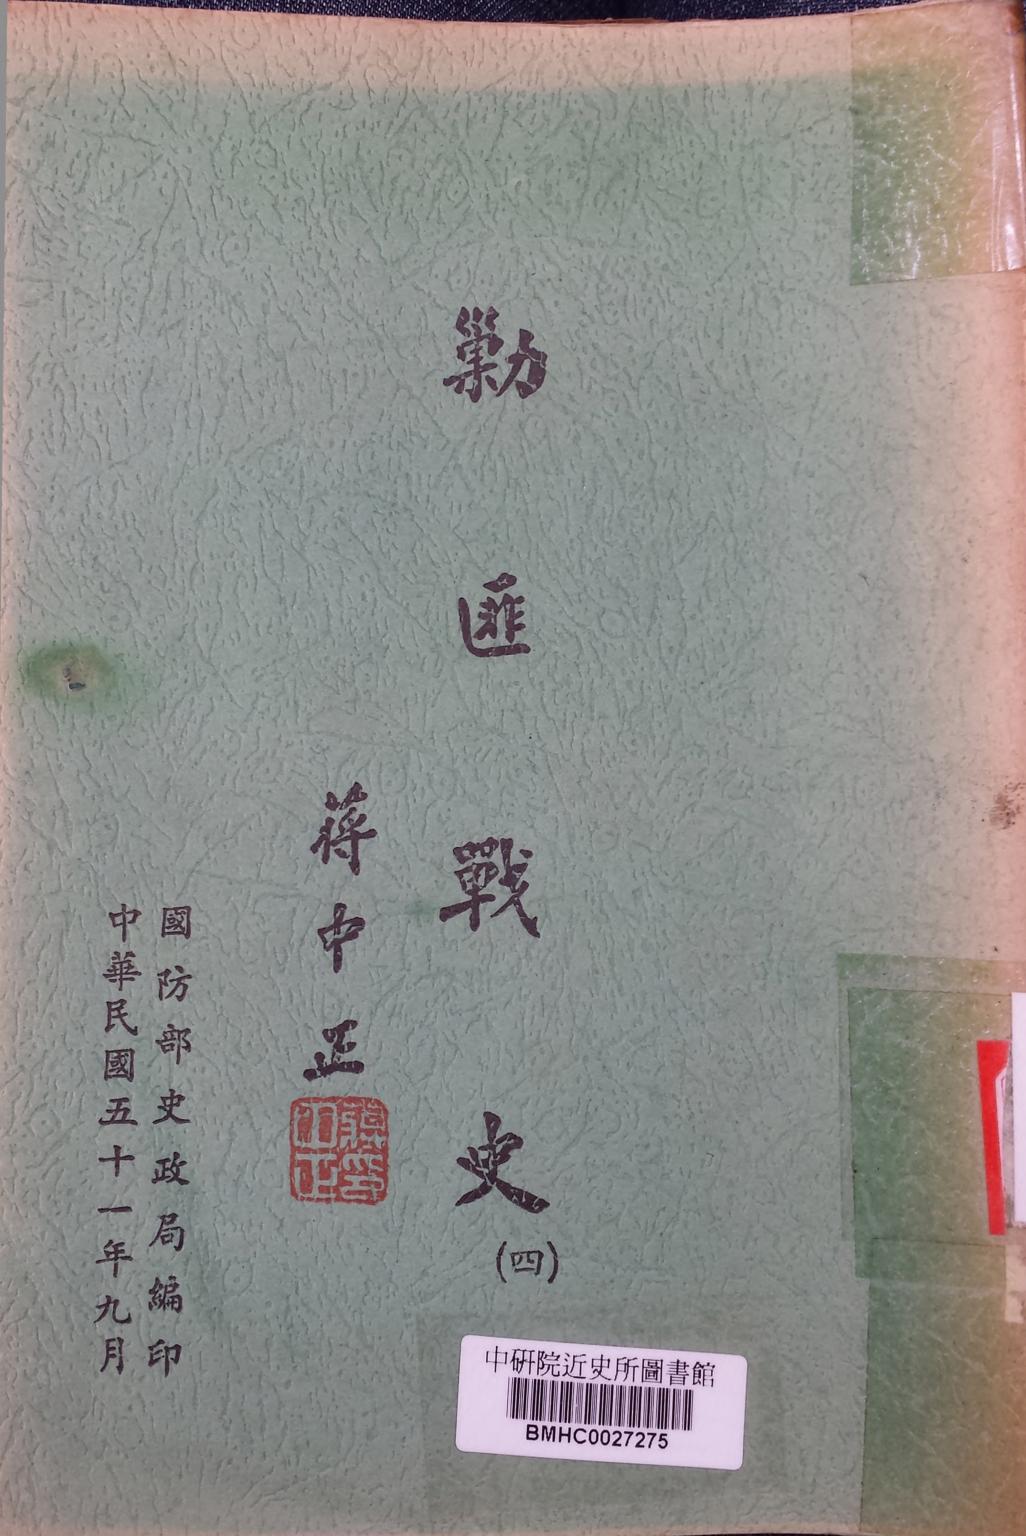 勦匪戰史
(四)
蔣中正
蔣中正印
國防部史政局編印
中華民國五十一年九月
中研院近史所圖書館
BMHC0027275